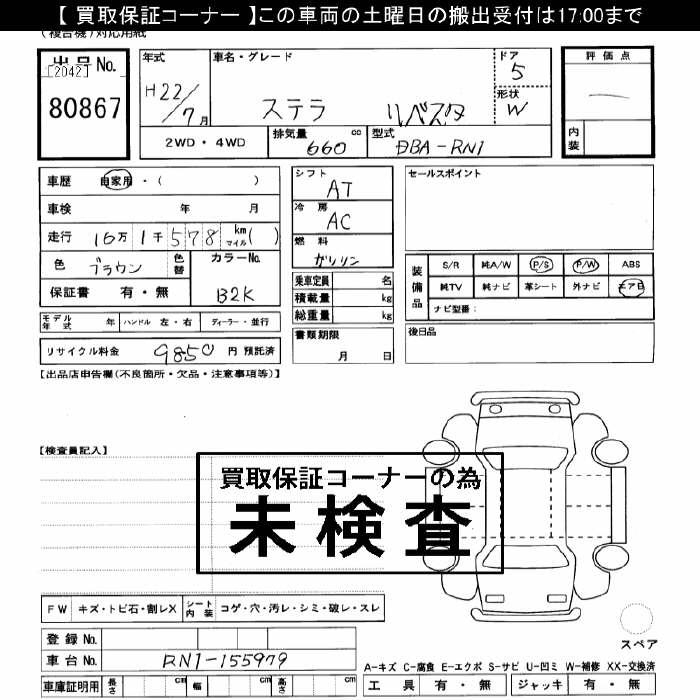 【 買取保証コーナー 】この車両の土曜日の搬出受付は17:00まで
(複合機)対応用紙
出品No.
[2042]
80867
年式
H22/7月
車名・グレード
ステラ リベスタ
ドア
5
形状
W
評価点
内装
2WD・4WD
排気量 660 cc
型式 DBA-RN1
車歴 自家用・( )
車検 年 月
走行 16万1千578 km マイル( )
色 ブラウン 色替
カラーNo. B2K
保証書 有・無
シフト
AT
冷房
AC
燃料
ガソリン
乗車定員 名
積載量 kg
総重量 kg
セールスポイント
装備品
S/R 純A/W P/S P/W ABS
純TV 純ナビ 革シート 外ナビ エアB
ナビ型番:
モデル年式 年 ハンドル 左・右 ディーラー・並行
リサイクル料金 9850 円 預託済
書類期限
月 日
後日品
【出品店申告欄(不良箇所・欠品・注意事項等)】
【検査員記入】
買取保証コーナーの為
未検査
FW キズ・トビ石・割レX シート内装 コゲ・穴・汚レ・シミ・破レ・スレ
登録No.
車台No. RN1-155979
車庫証明用 長さ cm 幅 cm 高さ cm
スペア
A-キズ C-腐食 E-エクボ S-サビ U-凹ミ W-補修 XX-交換済
工具 有・無 ジャッキ 有・無